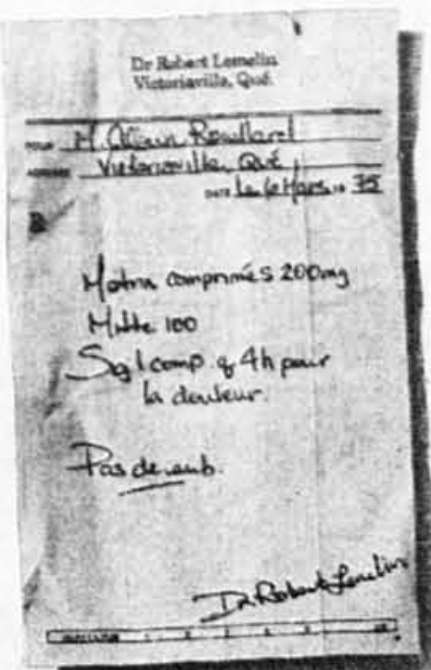 Dr Robert Lemelin
Victoriaville, Qué.
POUR M. Alain Rouillard
ADRESSE Victoriaville, Qué
DATE le 6 Mars 19 75
Motrin comprimés 200mg
Mitte 100
Sig 1 comp. q 4h pour
la douleur.
Pas de sub.
Dr. Robert Lemelin